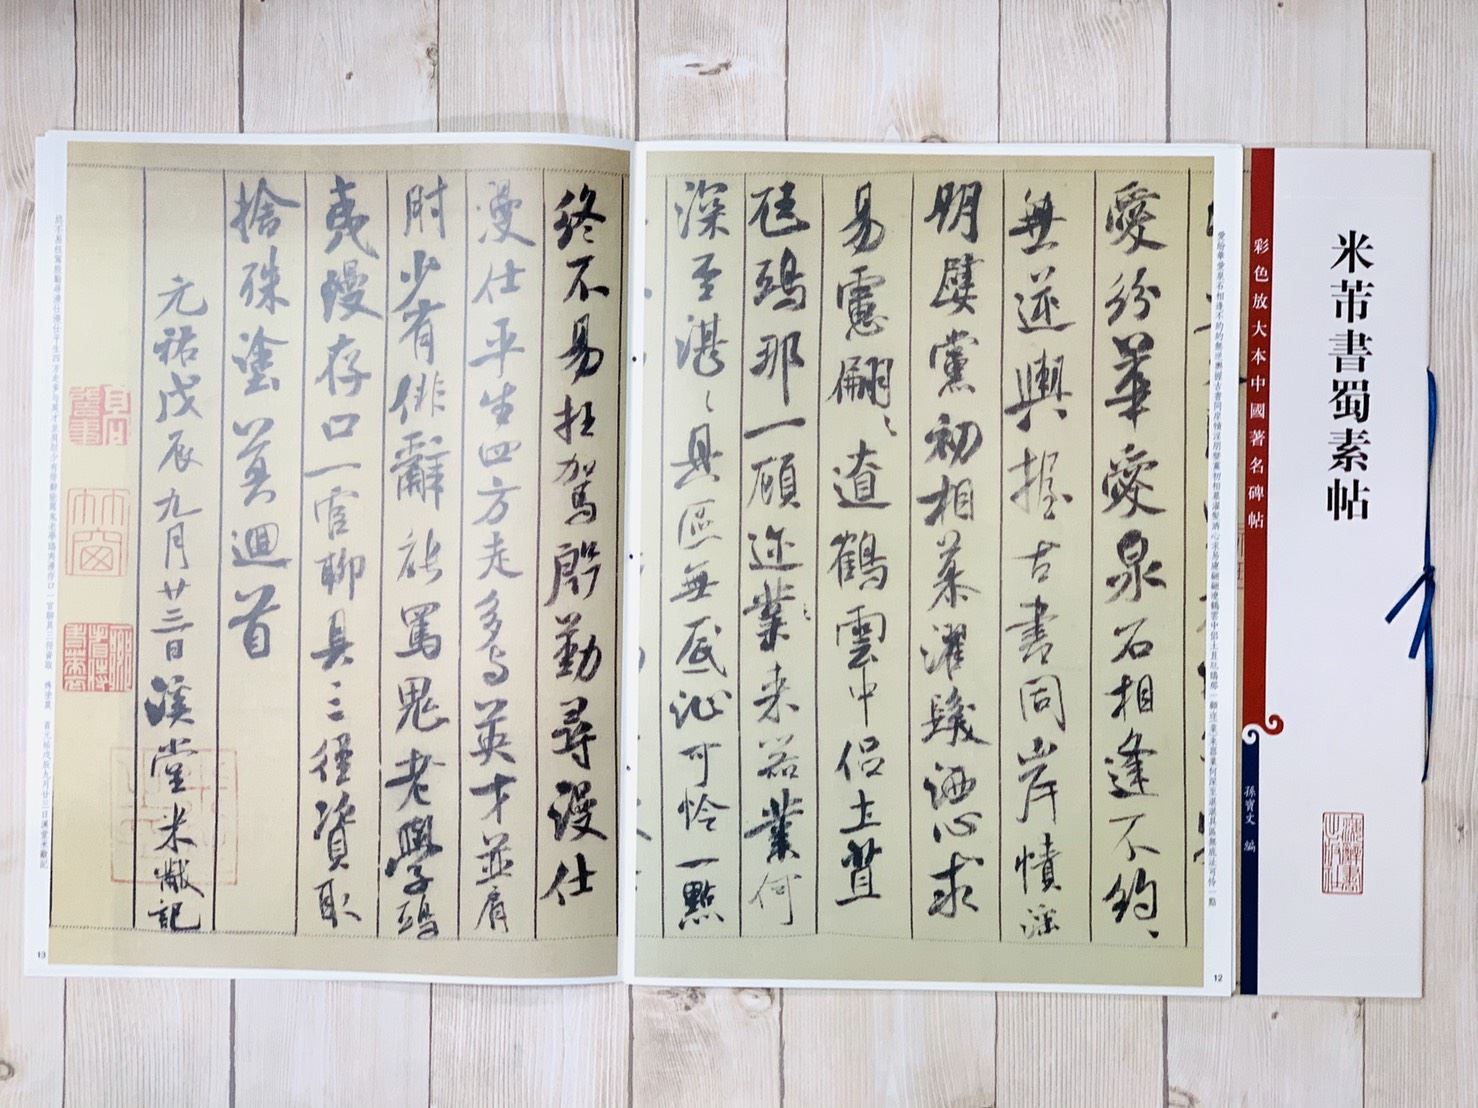 米芾書蜀素帖
彩色放大本中國著名碑帖
孫寶文 編
愛紛華愛泉石相逢不約、
無逆輿握古書同岸幘淫
朋嬖黨初相慕濯髮洒心求
易慮翩、遼鶴雲中侶土苴
尪鴟那一顧邇業来器業何
深至湛、具區無底沚可怜一點
12
終不易枉駕殷勤尋漫仕
漫仕平生四方走多与英才並肩
肘少有俳辭能罵鬼老學鴟
夷漫存口一官聊具三徑資取
捨殊塗莫迴首
元祐戊辰九月廿三日溪堂米黻記
13